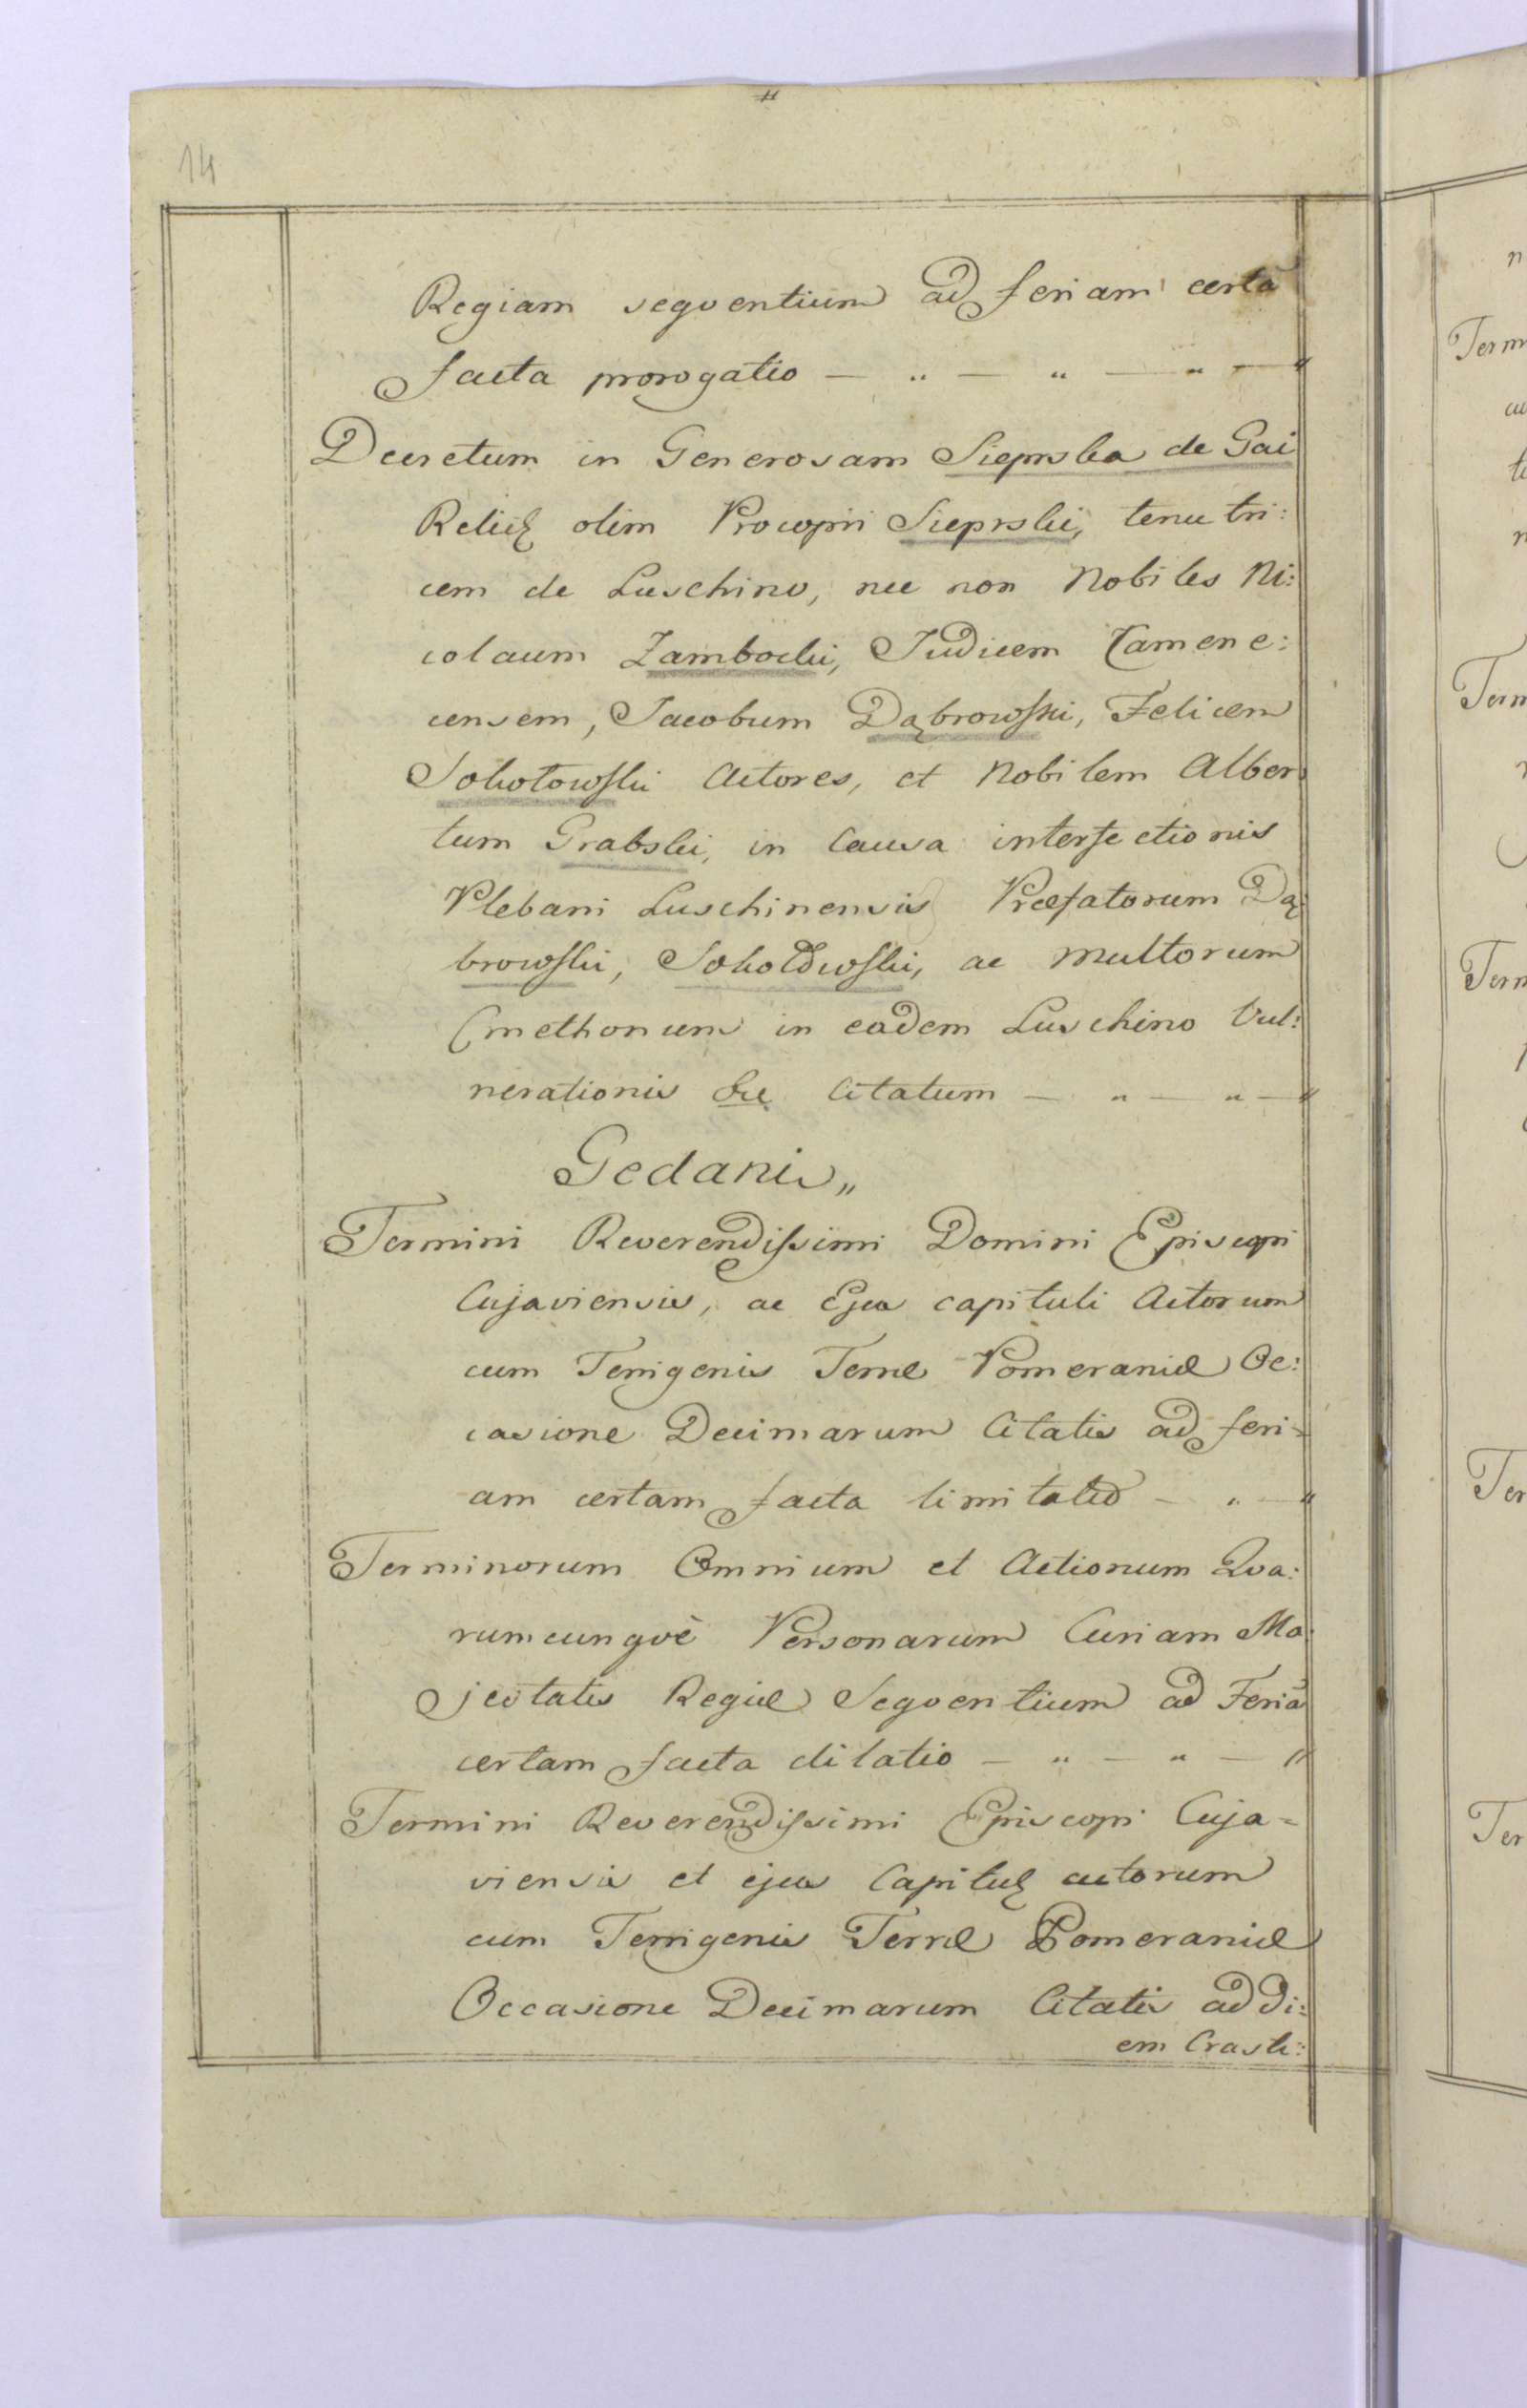 14
Regiam seqventium ad feriam certã
facta prorogatio — „ — „ — „ — „
Decretum in Generosam Sieprska de Gai
Relictę olim Procopii Sieprski, tenutri:
cem de Luschino, nec non Nobiles Ni:
colaum Zambocki, Judicem Camene:
censem, Jacobum Dąbrowski, Felicem
Sokołowski Actores, et Nobilem Alber
tum Grabski, in Causa interfectionis
Plebani Luschinensis Præfatorum Dą:
browski, Sokołowski, ac multorum
Cmethonum in eadem Luschino Vul:
nerationis &c Citatum — „ — „ — „
Gedanis„
Termini Reverendissimi Domini Episcopi
Cujaviensis, ac Ejus capituli Actorum
cum Terrigenis Terræ Pomeraniæ Oc:
casione Decimarum Citatis ad feri=
am certam facta limitatio — „ — „
Terminorum Omnium et Actionum Qva:
rumcunqvè Personarum Curiam Ma:
jestatis Regiæ Seqventium ad Feriã
certam facta dilatio — „ — „ — „
Termini Reverendissimi Episcopi Cuja=
viensis et ejus Capitulę actorum
cum Terrigenis Terræ Pomeraniæ
Occasione Decimarum Citatis ad di:
em Crasti: